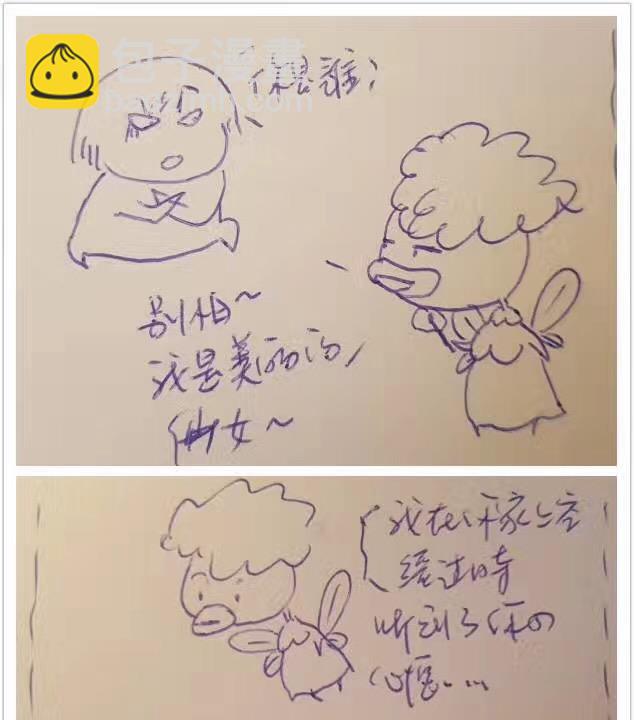 包子漫畫
baozimh.com
你是谁？
别怕~
我是美丽的
仙女~
我在你家上空
经过时
听到了你的
心愿……